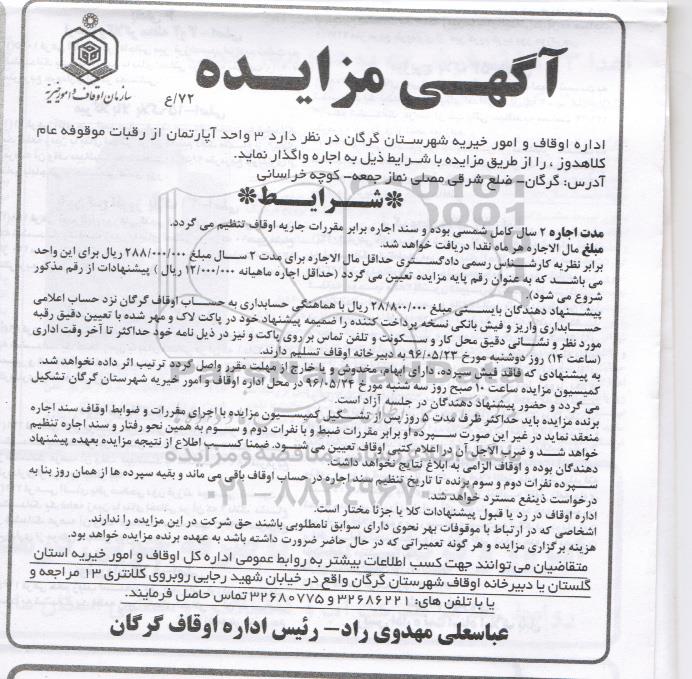 آگهی مزایده
سازمان اوقاف و امور خیریه
۷۲/ع
اداره اوقاف و امور خیریه شهرستان گرگان در نظر دارد ۳ واحد آپارتمان از رقبات موقوفه عام
کلاهدوز ، را از طریق مزایده با شرایط ذیل به اجاره واگذار نماید.
آدرس: گرگان- ضلع شرقی مصلی نماز جمعه- کوچه خراسانی
*شرایط*
مدت اجاره ۲ سال کامل شمسی بوده و سند اجاره برابر مقررات جاریه اوقاف تنظیم می گردد.
مبلغ مال الاجاره هر ماه نقدا دریافت خواهد شد.
برابر نظریه کارشناس رسمی دادگستری حداقل مال الاجاره برای مدت ۲ سال مبلغ ۲۸۸/۰۰۰/۰۰۰ ریال برای این واحد
می باشد که به عنوان رقم پایه مزایده تعیین می گردد (حداقل اجاره ماهیانه ۱۲/۰۰۰/۰۰۰ ریال ) پیشنهادات از رقم مذکور
شروع می شود).
پیشنهاد دهندگان بایستی مبلغ ۲۸/۸۰۰/۰۰۰ ریال با هماهنگی حسابداری به حساب اوقاف گرگان نزد حساب اعلامی
حسابداری واریز و فیش بانکی نسخه پرداخت کننده را ضمیمه پیشنهاد خود در پاکت لاک و مهر شده با تعیین دقیق رقبه
مورد نظر و نشانی دقیق محل کار و سکونت و تلفن تماس بر روی پاکت و نیز در ذیل نامه خود حداکثر تا آخر وقت اداری
(ساعت ۱۴) روز دوشنبه مورخ ۹۶/۰۵/۲۳ به دبیرخانه اوقاف تسلیم دارند.
به پیشنهادی که فاقد فیش سپرده، دارای ابهام، مخدوش و یا خارج از مهلت مقرر واصل گردد ترتیب اثر داده نخواهد شد.
کمیسیون مزایده ساعت ۱۰ صبح روز سه شنبه مورخ ۹۶/۰۵/۲۴ در محل اداره اوقاف و امور خیریه شهرستان گرگان تشکیل
می گردد و حضور پیشنهاد دهندگان در جلسه آزاد است.
برنده مزایده باید حداکثر ظرف مدت ۵ روز پس از تشکیل کمیسیون مزایده با اجرای مقررات و ضوابط اوقاف سند اجاره
منعقد نماید در غیر این صورت سپرده او برابر مقررات ضبط و با نفرات دوم و سوم به همین نحو رفتار و سند اجاره تنظیم
خواهد شد و ضرب الاجل آن در اعلام کتبی اوقاف تعیین می شود. ضمنا کسب اطلاع از نتیجه مزایده بعهده پیشنهاد
دهندگان بوده و اوقاف الزامی به ابلاغ نتایج نخواهد داشت.
سپرده نفرات دوم و سوم برنده تا تاریخ تنظیم سند اجاره در حساب اوقاف باقی می ماند و بقیه سپرده ها از همان روز بنا به
درخواست ذینفع مسترد خواهد شد.
اداره اوقاف در رد یا قبول پیشنهادات کلا یا جزئا مختار است.
اشخاصی که در ارتباط با موقوفات بهر نحوی دارای سوابق نامطلوبی باشند حق شرکت در این مزایده را ندارند.
هزینه برگزاری مزایده و هر گونه تعمیراتی که در حال حاضر ضرورت داشته باشد به عهده برنده مزایده خواهد بود.
متقاضیان می توانند جهت کسب اطلاعات بیشتر به روابط عمومی اداره کل اوقاف و امور خیریه استان
گلستان یا دبیرخانه اوقاف شهرستان گرگان واقع در خیابان شهید رجایی روبروی کلانتری ۱۳ مراجعه و
یا با تلفن های: ۳۲۶۸۶۲۲۱ و ۳۲۶۸۰۷۷۵ تماس حاصل فرمایند.
عباسعلی مهدوی راد- رئیس اداره اوقاف گرگان
۰۲۱-۸۸۳۴۹۶۷۰